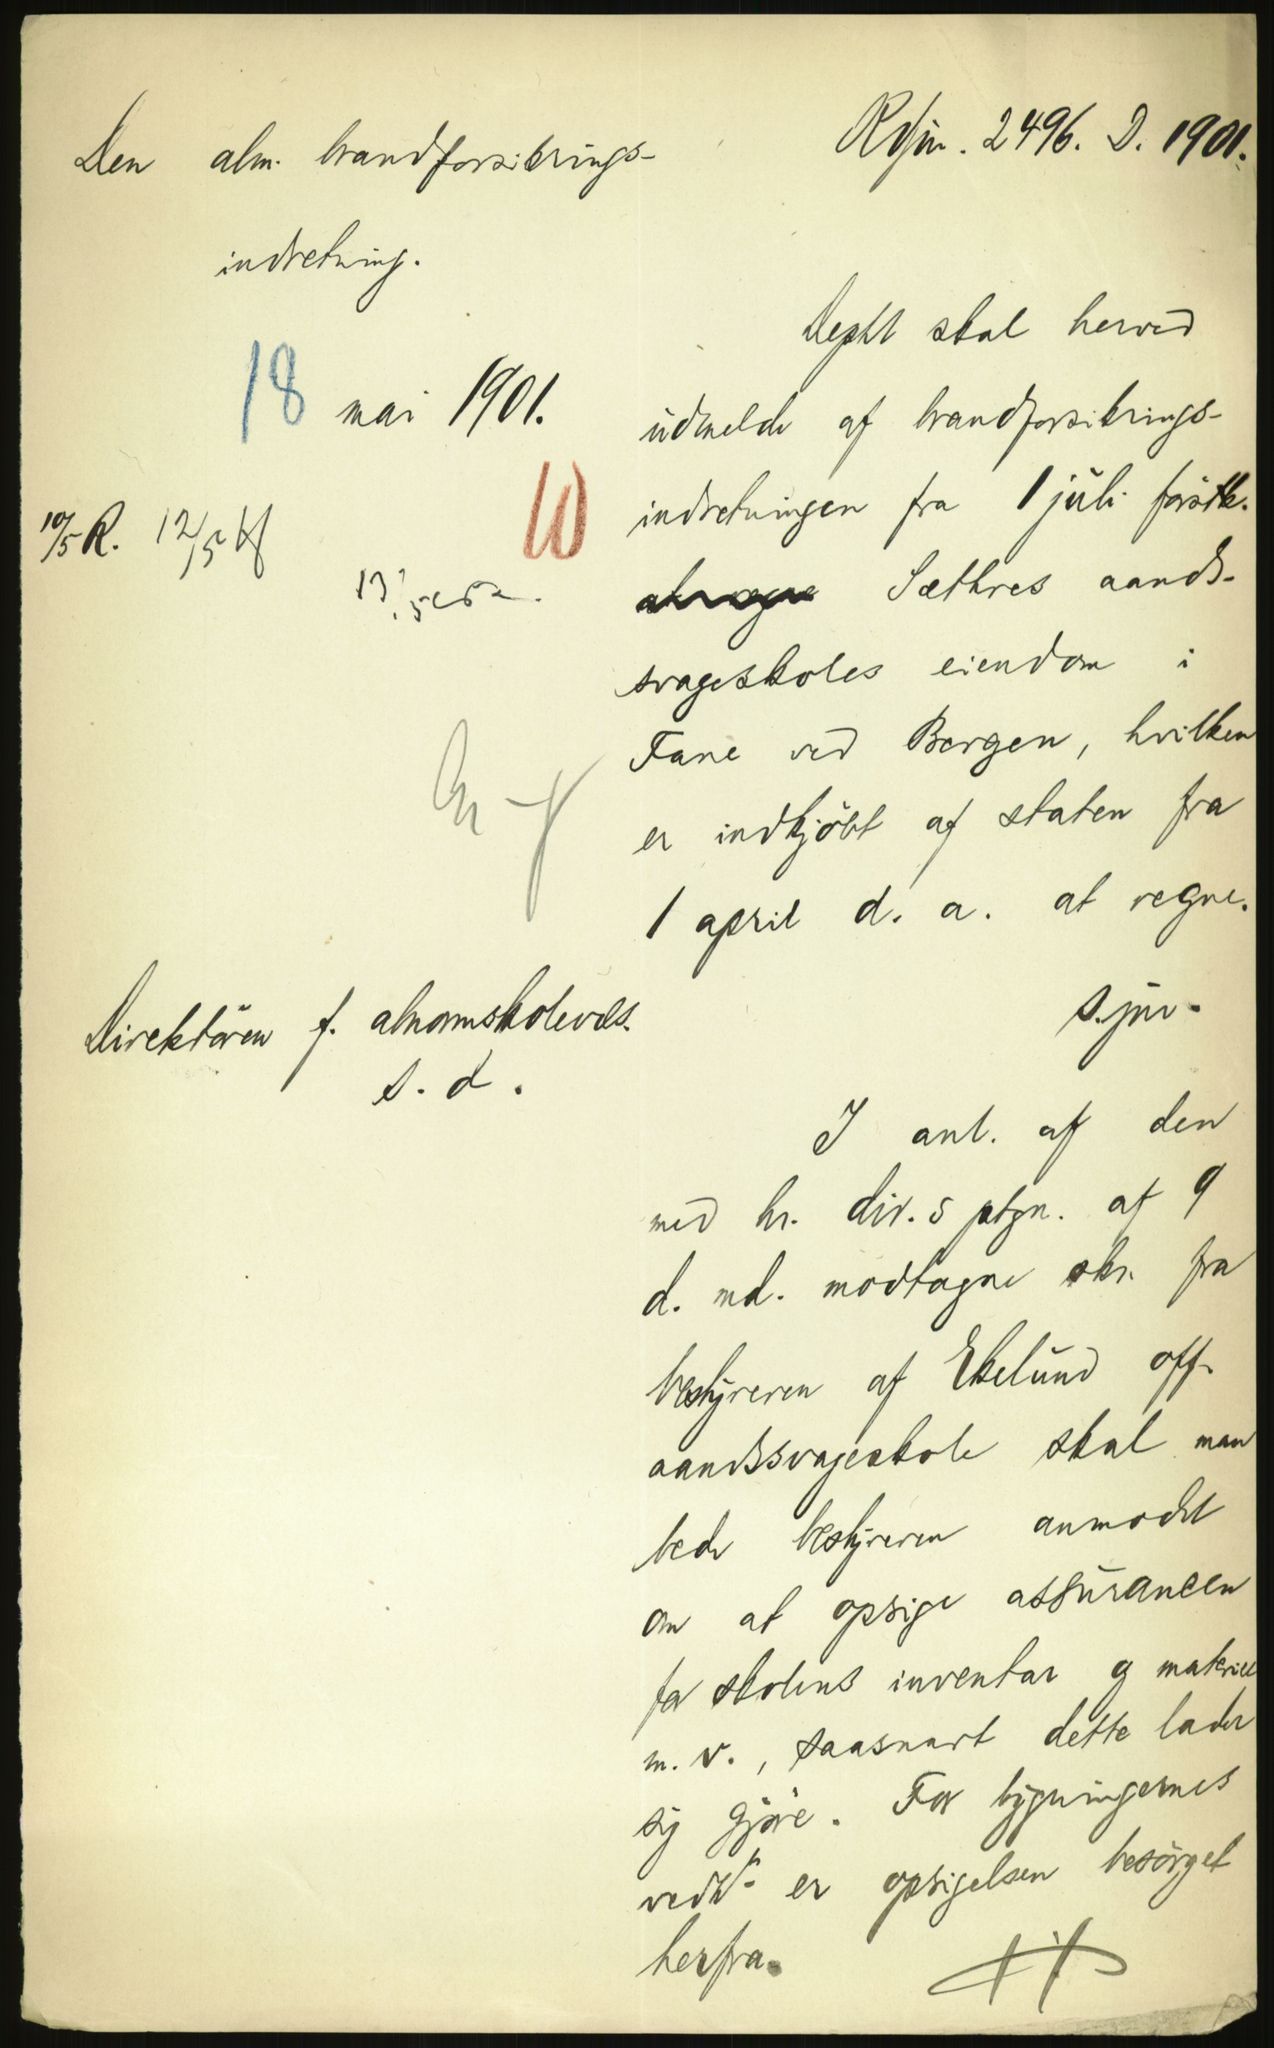 Den alm. brandforsikrings-
indretning.
Rdjnr. 2496. D. 1901.
18 mai 1901.
10/5 R. 12/5
10
Depkt skal herved
udmelde af brandforsikrings-
indretningen fra 1 juli förstk.
Sæthres aands-
svageskoles eiendom i
Fane ved Bergen, hvilken
er indkjöbt af staten fra
1 april d. a. at regne.
S. jnr.
Direktören f. abnormskolevæs.
s. d.
I anl. af den
med hr. dir.s ptgn. af 9
d. md. modtagne skr. fra
bestyreren af Ekelund off.
aandssvageskole skal man
bede bestyreren anmodet
om at opsige assurancen
for skolens inventar og materiel
m. v., saasnart dette lader
sig gjöre. For bygningernes
vedk. er opsigelsen besörget
herfra.